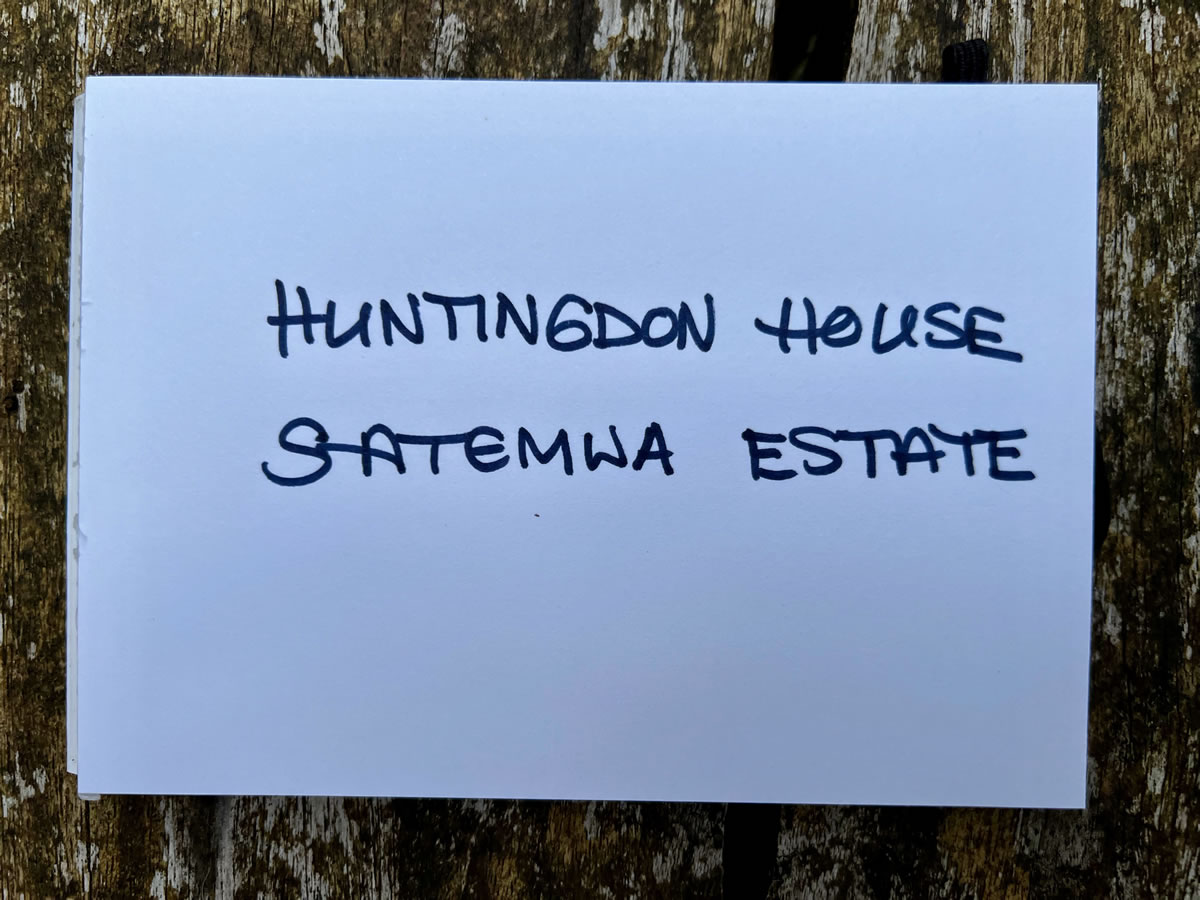 HUNTINGDON HOUSE
SATEMWA ESTATE